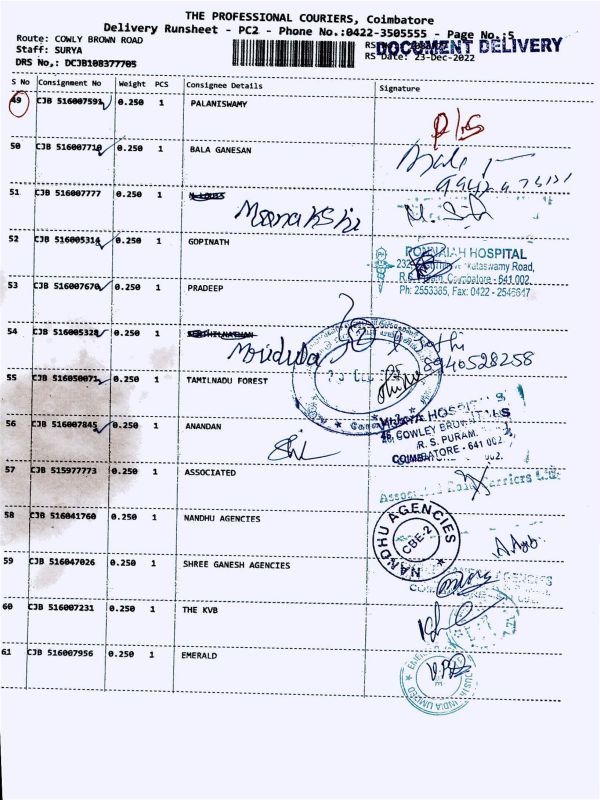 THE PROFESSIONAL COURIERS, Coimbatore
Delivery Runsheet - PC2 - Phone No.:0422-3505555 - Page No.:5
Route: COWLY BROWN ROAD
Staff: SURYA
DRS No,: DCJB108377705
DOCUMENT DELIVERY
RS Date: 23-Dec-2022
S No Consignment No Weight PCS Consignee Details Signature
49 CJB 516007591 0.250 1 PALANISWAMY
50 CJB 516007710 0.250 1 BALA GANESAN
51 CJB 516007777 0.250 1
Meenakshi
52 CJB 516005314 0.250 1 GOPINATH
HOSPITAL
Road,
Coimbatore - 641 002.
Ph: 2553385, Fax: 0422 - 2546647
53 CJB 516007670 0.250 1 PRADEEP
54 CJB 516005328 0.250 1 SENTHILNATHAN
Mridula
8940528258
55 CJB 516050071 0.250 1 TAMILNADU FOREST
56 CJB 516007845 0.250 1 ANANDAN
R. S. PURAM,
COIMBATORE - 641 002.
57 CJB 515977773 0.250 1 ASSOCIATED
Associated Road Carriers Ltd.
58 CJB 516041760 0.250 1 NANDHU AGENCIES
NANDHU AGENCIES
CBE-2
59 CJB 516047026 0.250 1 SHREE GANESH AGENCIES
AGENCIES
60 CJB 516007231 0.250 1 THE KVB
61 CJB 516007956 0.250 1 EMERALD
INDIA LIMITED